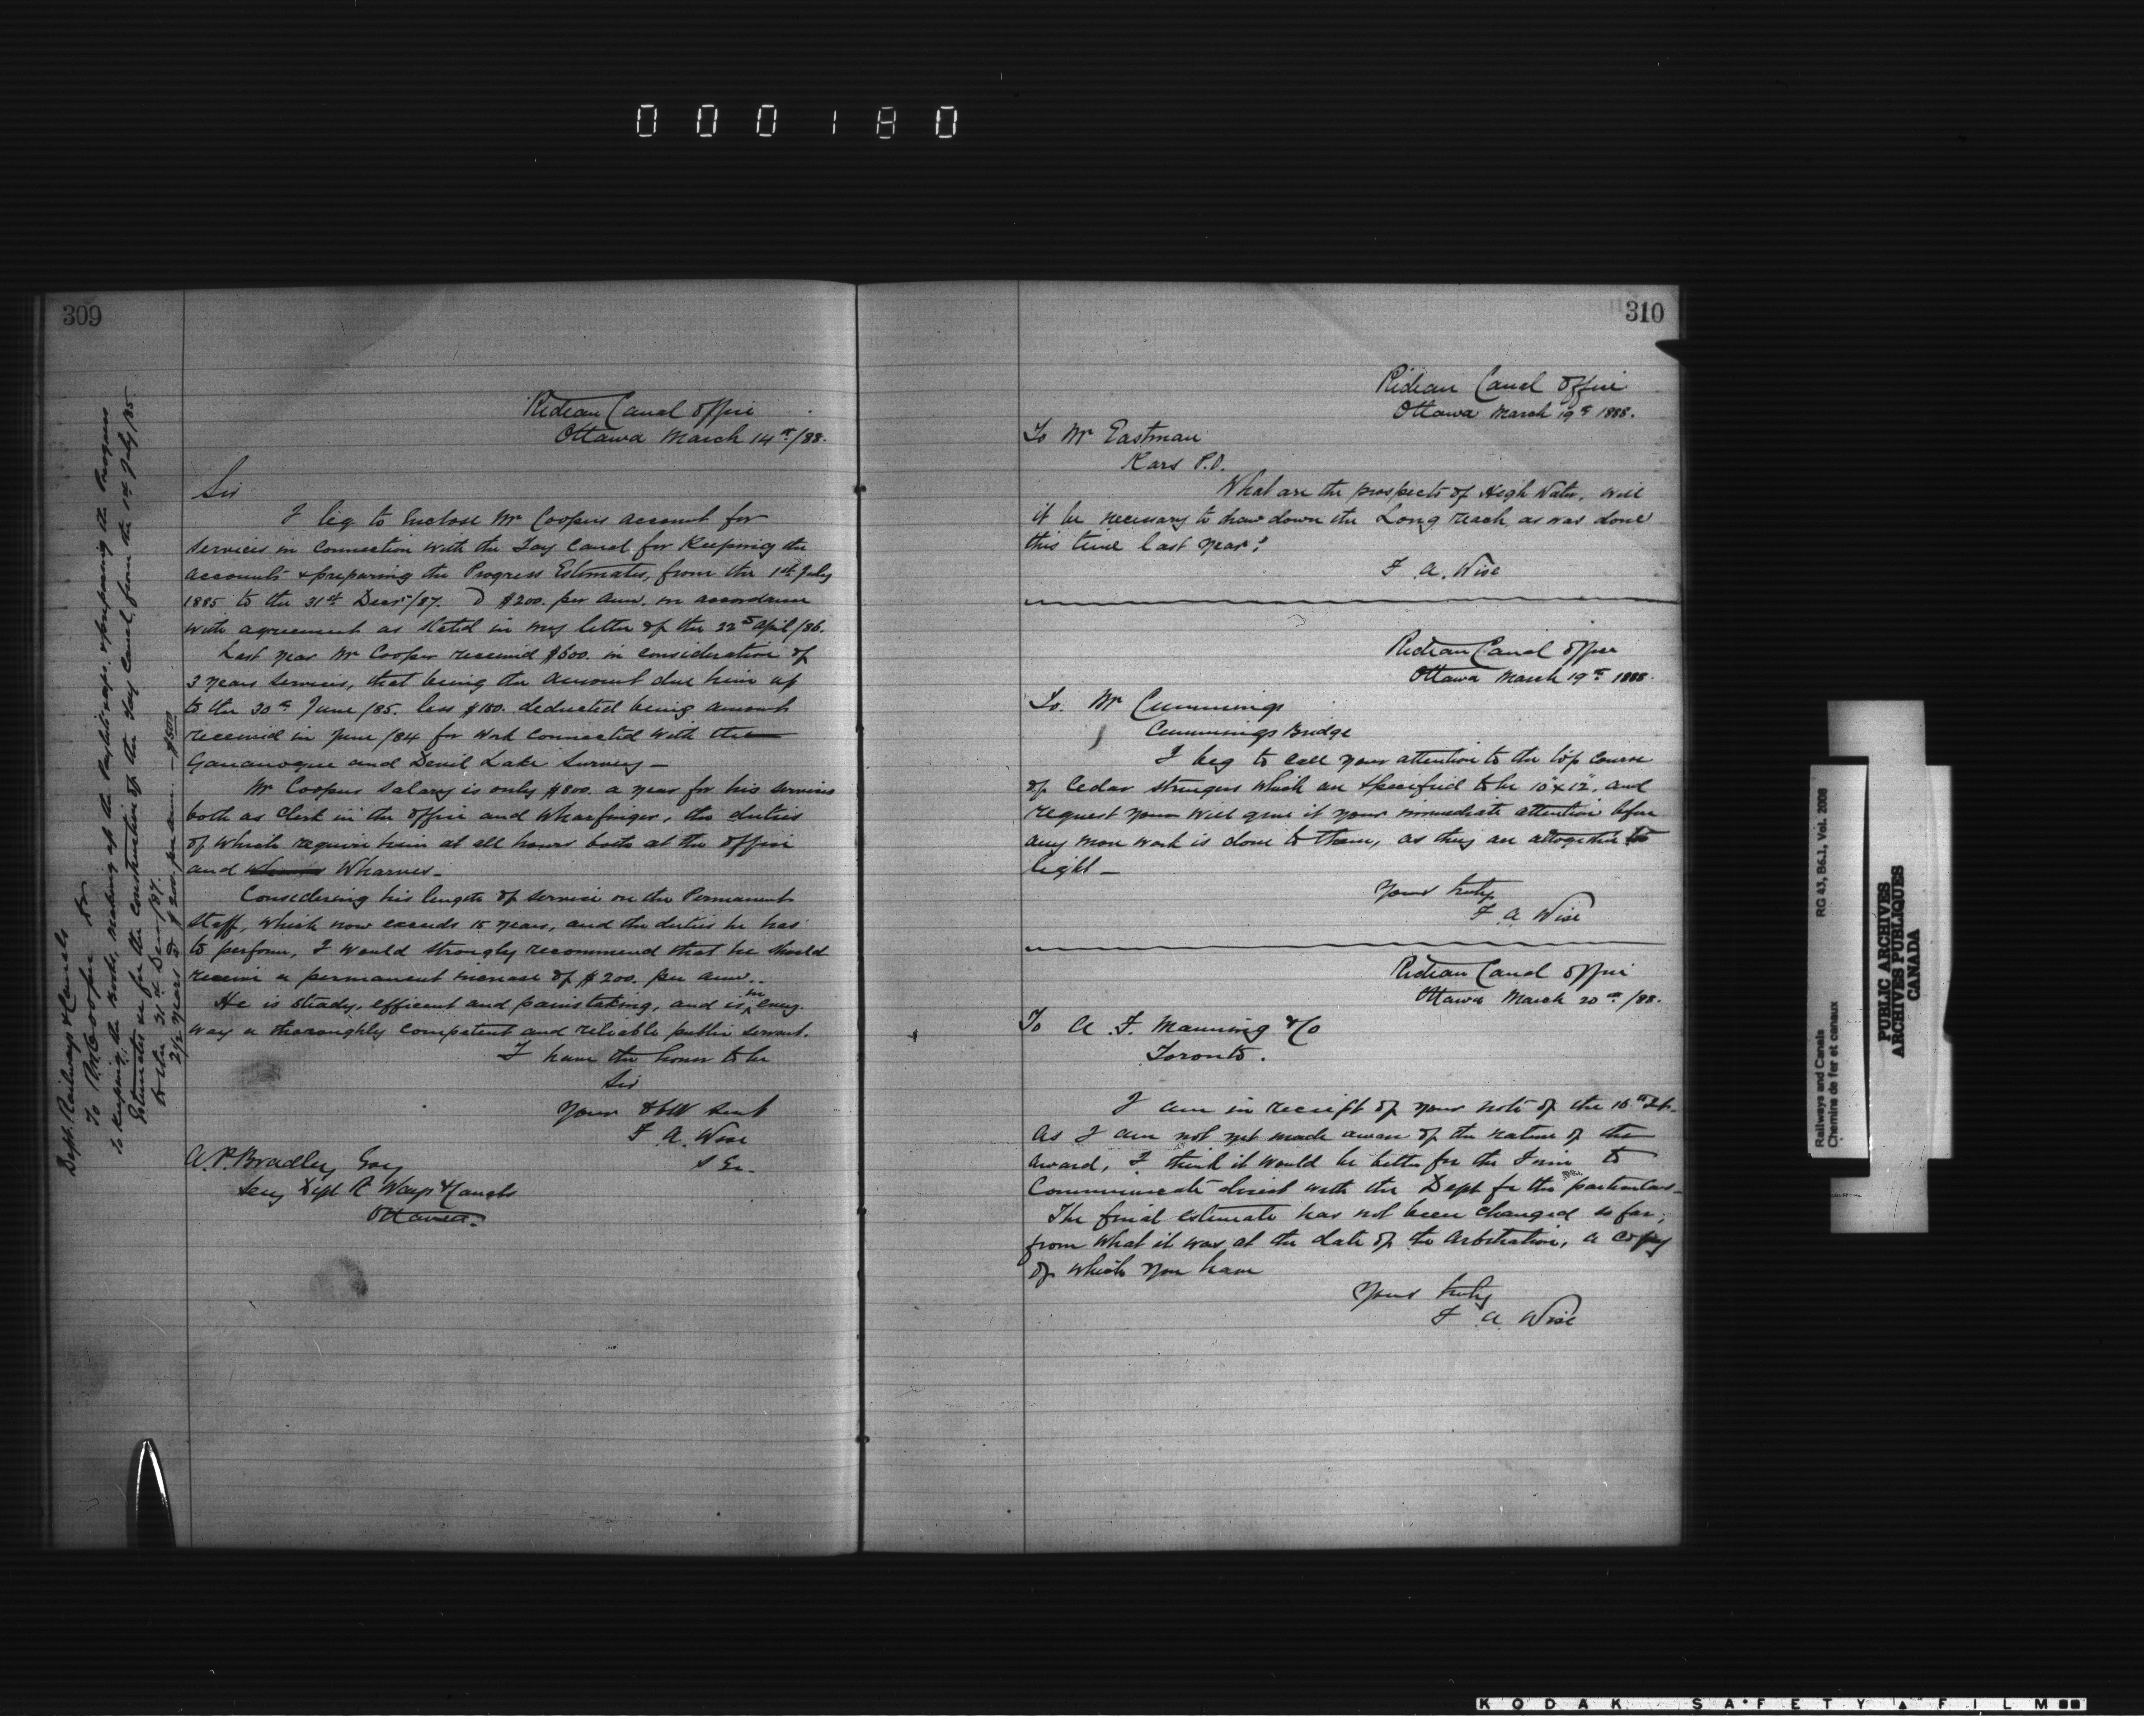 000180
309
Rideau Canal Office
Ottawa March 14th/88.
Sir
I beg to Enclose Mr Coopers account for
services in connection with the Tay Canal for Keeping the
accounts & preparing the Progress Estimates, from the 1st July
1885 to the 31st Decr/87. @ $200. per ann. in accordance
with agreement as stated in my letter of the 22nd April/86.
Last year Mr Cooper received $600. in consideration of
3 years services, that being the amount due him up
to the 30th June/85. less $180. deducted being amount
received in June/84 for work connected with the
Gananoque and Devil Lake Survey—
Mr Coopers salary is only $800. a year for his services
both as Clerk in the office and Wharfinger, the duties
of which require him at all hours both at the office
and Wharves—
Considering his length of service on the Permanent
Staff, which now exceeds 15 years, and the duties he has
to perform, I would strongly recommend that he should
receive a permanent increase of $200. per ann..
He is steady, efficent and painstaking, and is in every
way a thoroughly competent and reliable public servant.
I have the honor to be
Sir
Your Obt Servt
F. A. Wise
S En.
A. P. Bradley Esq
Secy Dept R Ways & Canals
Ottawa.
Dept. Railways & Canals
To R M Cooper Dr
To Keeping the Books, making up the Paylists & preparing the Progress
Estimates for the construction of the Tay Canal, from the 1st July/85
to the 31st Decr/87.
2½ years @ $200. per ann. — $500
310
Rideau Canal Office
Ottawa March 19th 1888.
To Mr Eastman
Kars P.O.
What are the prospects of High Water, will
it be necessary to draw down the Long reach as was done
this time last year?
F. A. Wise
Rideau Canal Office
Ottawa March 19th 1888.
To. Mr Cummings
Cummings Bridge
I beg to call your attention to the top course
of Cedar stringers which are specified to be 10"x12", and
request you will give it your immediate attention before
any more work is done to them, as they are altogether too
light—
Yours truly
F A Wise
Rideau Canal Office
Ottawa March 20th/88.
To A. F. Manning & Co
Toronto.
I am in receipt of your note of the 16th
As I am not yet made aware of the nature of the
award, I think it would be better for the Firm to
Communicate direct with the Dept for the particulars—
The final estimate has not been changed so far,
from what it was at the date of the Arbitration, a copy
of which you have
Yours truly
F A Wise
Railways and Canals
Chemins de fer et canaux
RG 43, B6.1, Vol. 2008
PUBLIC ARCHIVES
ARCHIVES PUBLIQUES
CANADA
KODAK SAFETY FILM